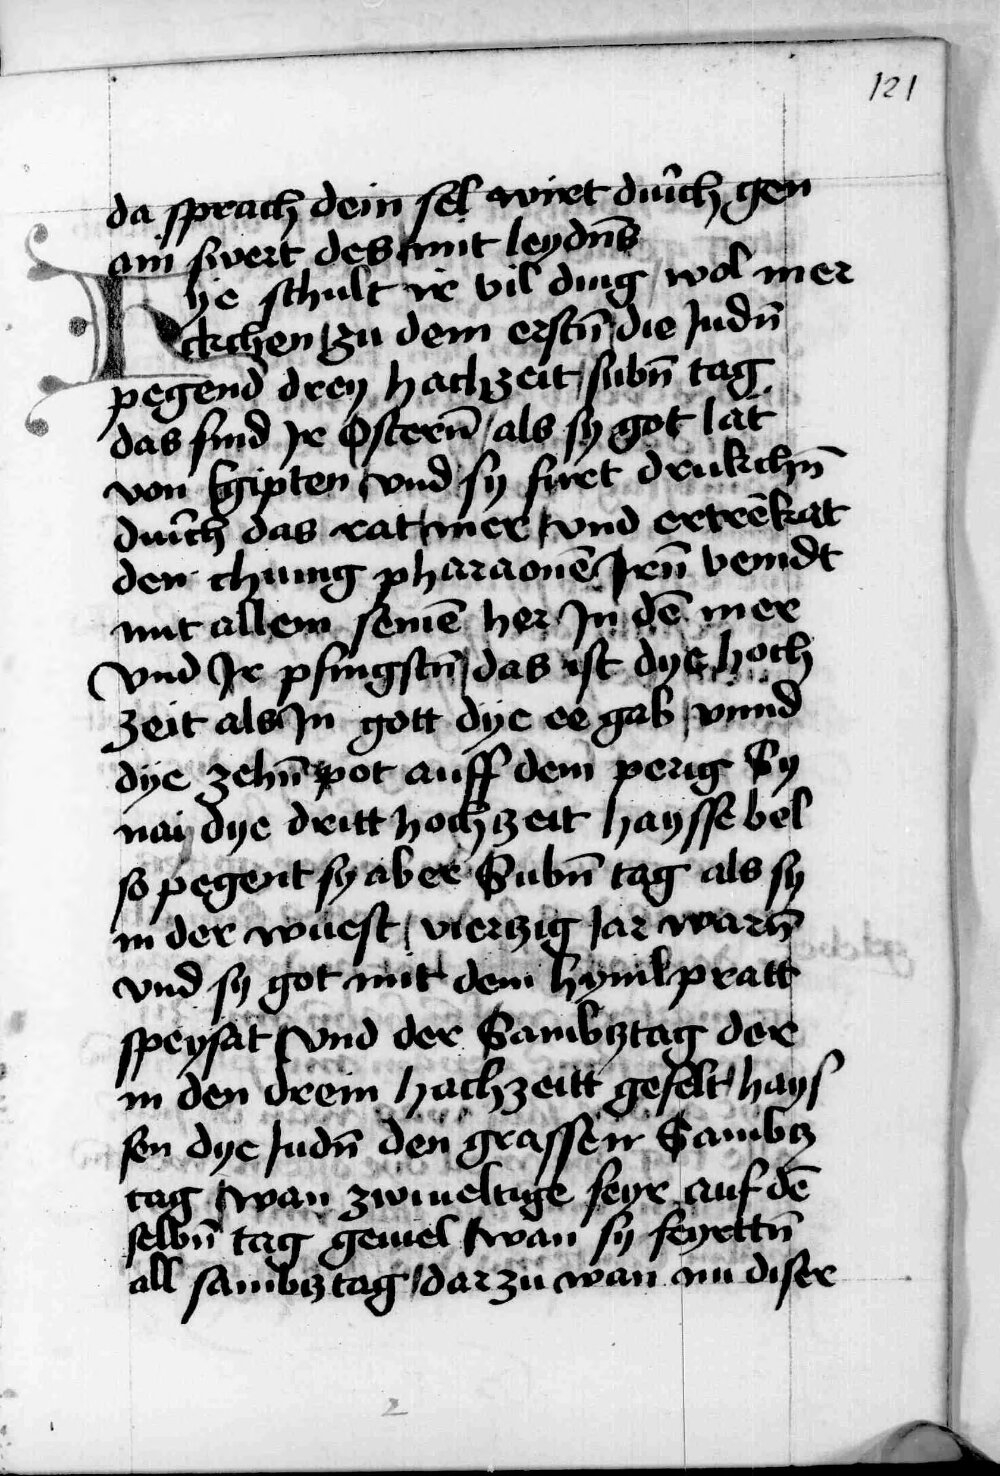 121
da sprach dein sel wirt durch gen
ain swert des mit leydns̄
Hye schult ir vil ding / wol mer
ckchen / zu dem erstn̄ / die Judn̄
pegend drey hachzeit / sibn̄ tag
das sind Ir Ostern̄ / als sy got lat
von Egipten / vnd sy firet drukchn̄
durch das rat / mer / vnd ertrēkat
den chunig pharaonē / Irn̄ veindt
mit allem seinē her In dē mer
Vnd Ir pfingstn̄ / das ist dye hoch
zeit als In gott dye ee gab / vnnd
dye zehn̄ pot auff dem perig Sy
nai / dye dritt hochzeit haysse bel
so pegent sy aber Sibn̄ tag als sy
in der wuest / viertzig Jar warn̄
vnd sy got mit dem hymlpratt
speysat / vnd der Sambtztag der
in den drein hachzeitt gefelt / hays
sen dye Judn̄ den grassen Sambtz
tag / wan zwiueltige feyr auf dē
selbn̄ tag geuiel / wan sy feyrttn̄
all sambtztag / darzu wan nu diser
2